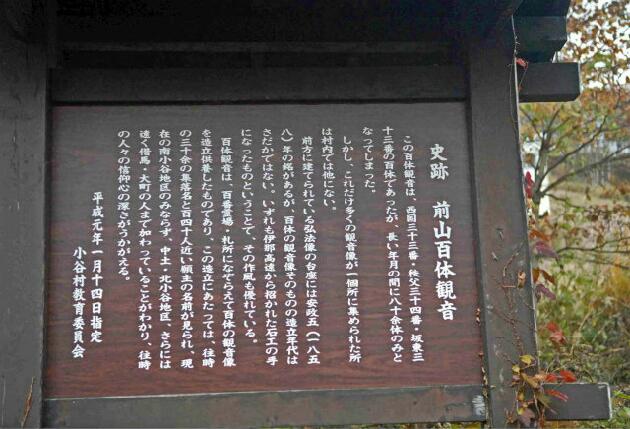 史跡　前山百体観音
この百体観音は、西国三十三番・秩父三十四番・坂東三
十三番の百体であったが、長い年月の間に八十余体のみと
なってしまった。
しかし、これだけ多くの観音像が一個所に集められた所
は村内では他にない。
前方に建てられている弘法像の台座には安政五（一八五
八）年の銘があるが、百体の観音像そのものの造立年代は
さだかではない。いずれも伊那高遠から招かれた石工の手
になったものということで、その作風も優れている。
百体観音は、百番霊場・札所になぞらえて百体の観音像
を造立供養したものであり、この造立にあたっては、往時
の三十余の集落名と百四十人近い願主の名前が見られ、現
在の南小谷地区のみならず、中土・北小谷地区、さらには
遠く借馬・大町の人まで加わっていることがわかり、往時
の人々の信仰心の深さがうかがえる。
平成元年一月十四日指定
小谷村教育委員会